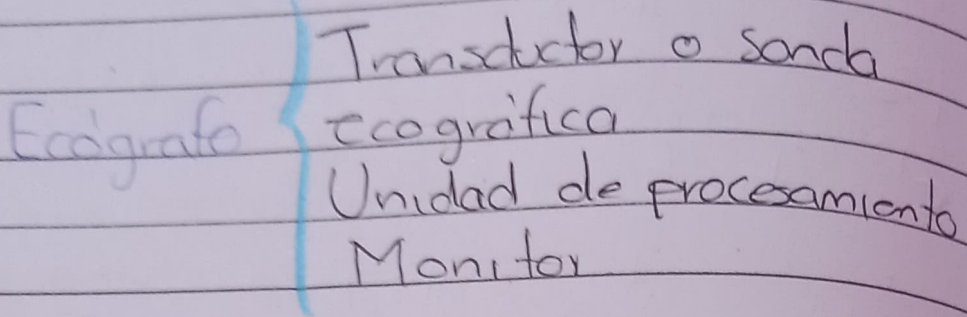 Ecógrafo
Transductor o sonda
ecográfica
Unidad de procesamiento
Monitor